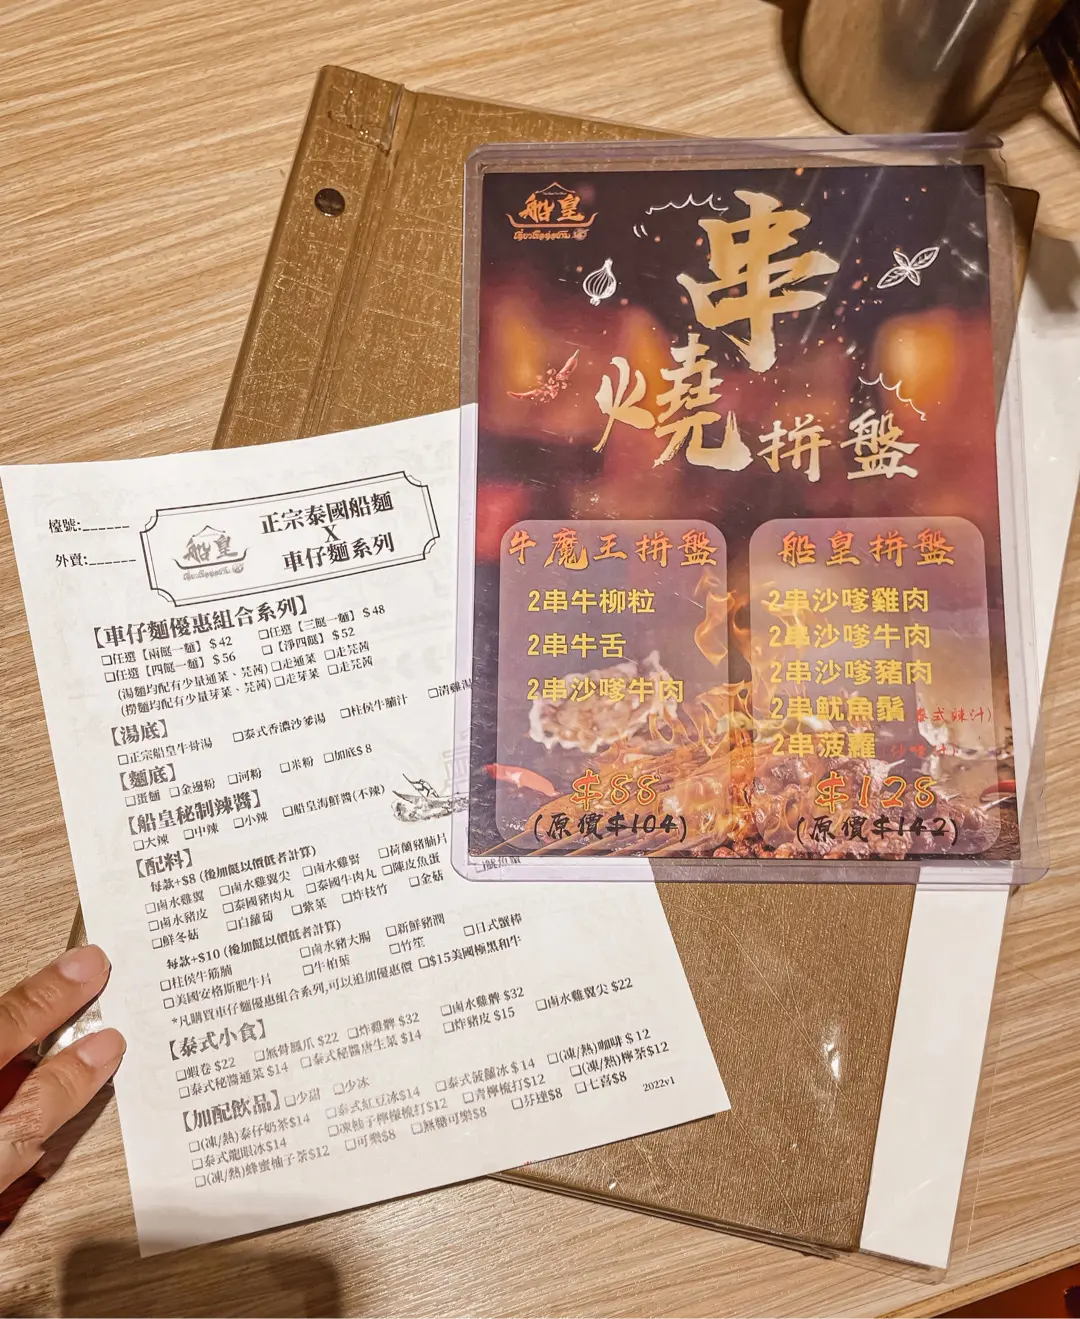 檯號:______
外賣:______
船皇
正宗泰國船麵
X
車仔麵系列
【車仔麵優惠組合系列】
❏任選【兩餸一麵】$42 ❏任選【三餸一麵】$48
❏任選【四餸一麵】$56 ❏【淨四餸】$52
(湯麵均配有少量通菜、芫茜) ❏走通菜 ❏走芫茜
(撈麵均配有少量芽菜、芫茜) ❏走芽菜 ❏走芫茜
【湯底】
❏正宗船皇牛骨湯 ❏泰式香濃沙爹湯 ❏柱侯牛腩汁 ❏清雞湯
【麵底】
❏蛋麵 ❏金邊粉 ❏河粉 ❏米粉 ❏加底$8
【船皇秘制辣醬】
❏大辣 ❏中辣 ❏小辣 ❏船皇海鮮醬(不辣)
【配料】
每款+$8 (後加餸以價低者計算)
❏鹵水雞翼 ❏鹵水雞翼尖 ❏鹵水雞腎 ❏荷蘭豬腩片
❏鹵水豬皮 ❏泰國豬肉丸 ❏泰國牛肉丸 ❏陳皮魚蛋
❏鮮冬菇 ❏白蘿蔔 ❏紫菜 ❏炸枝竹 ❏金菇
每款+$10 (後加餸以價低者計算)
❏柱侯牛筋腩 ❏鹵水豬大腸 ❏新鮮豬潤 ❏日式蟹棒
❏美國安格斯肥牛片 ❏牛柏葉 ❏竹笙
*凡購買車仔麵優惠組合系列,可以追加優惠價 ❏$15美國極黑和牛
【泰式小食】
❏蝦卷 $22 ❏無骨鳳爪 $22 ❏炸雞髀 $32 ❏鹵水雞髀 $32 ❏鹵水雞翼尖 $22
❏泰式秘醬通菜 $14 ❏泰式秘醬唐生菜 $14 ❏炸豬皮 $15
【加配飲品】❏少甜 ❏少冰
❏(凍/熱)泰仔奶茶$14 ❏泰式紅豆冰$14 ❏泰式菠蘿冰$14 ❏(凍/熱)咖啡$12
❏泰式龍眼冰$14 ❏凍柚子檸檬梳打$12 ❏青檸梳打$12 ❏(凍/熱)檸茶$12
❏(凍/熱)蜂蜜柚子茶$12 ❏可樂$8 ❏無糖可樂$8 ❏芬達$8 ❏七喜$8
2022v1
船皇
串
燒
拼盤
牛魔王拼盤
2串牛柳粒
2串牛舌
2串沙嗲牛肉
$88
(原價$104)
船皇拼盤
2串沙嗲雞肉
2串沙嗲牛肉
2串沙嗲豬肉
2串魷魚鬚 泰式辣汁)
2串菠蘿
$128
(原價$142)